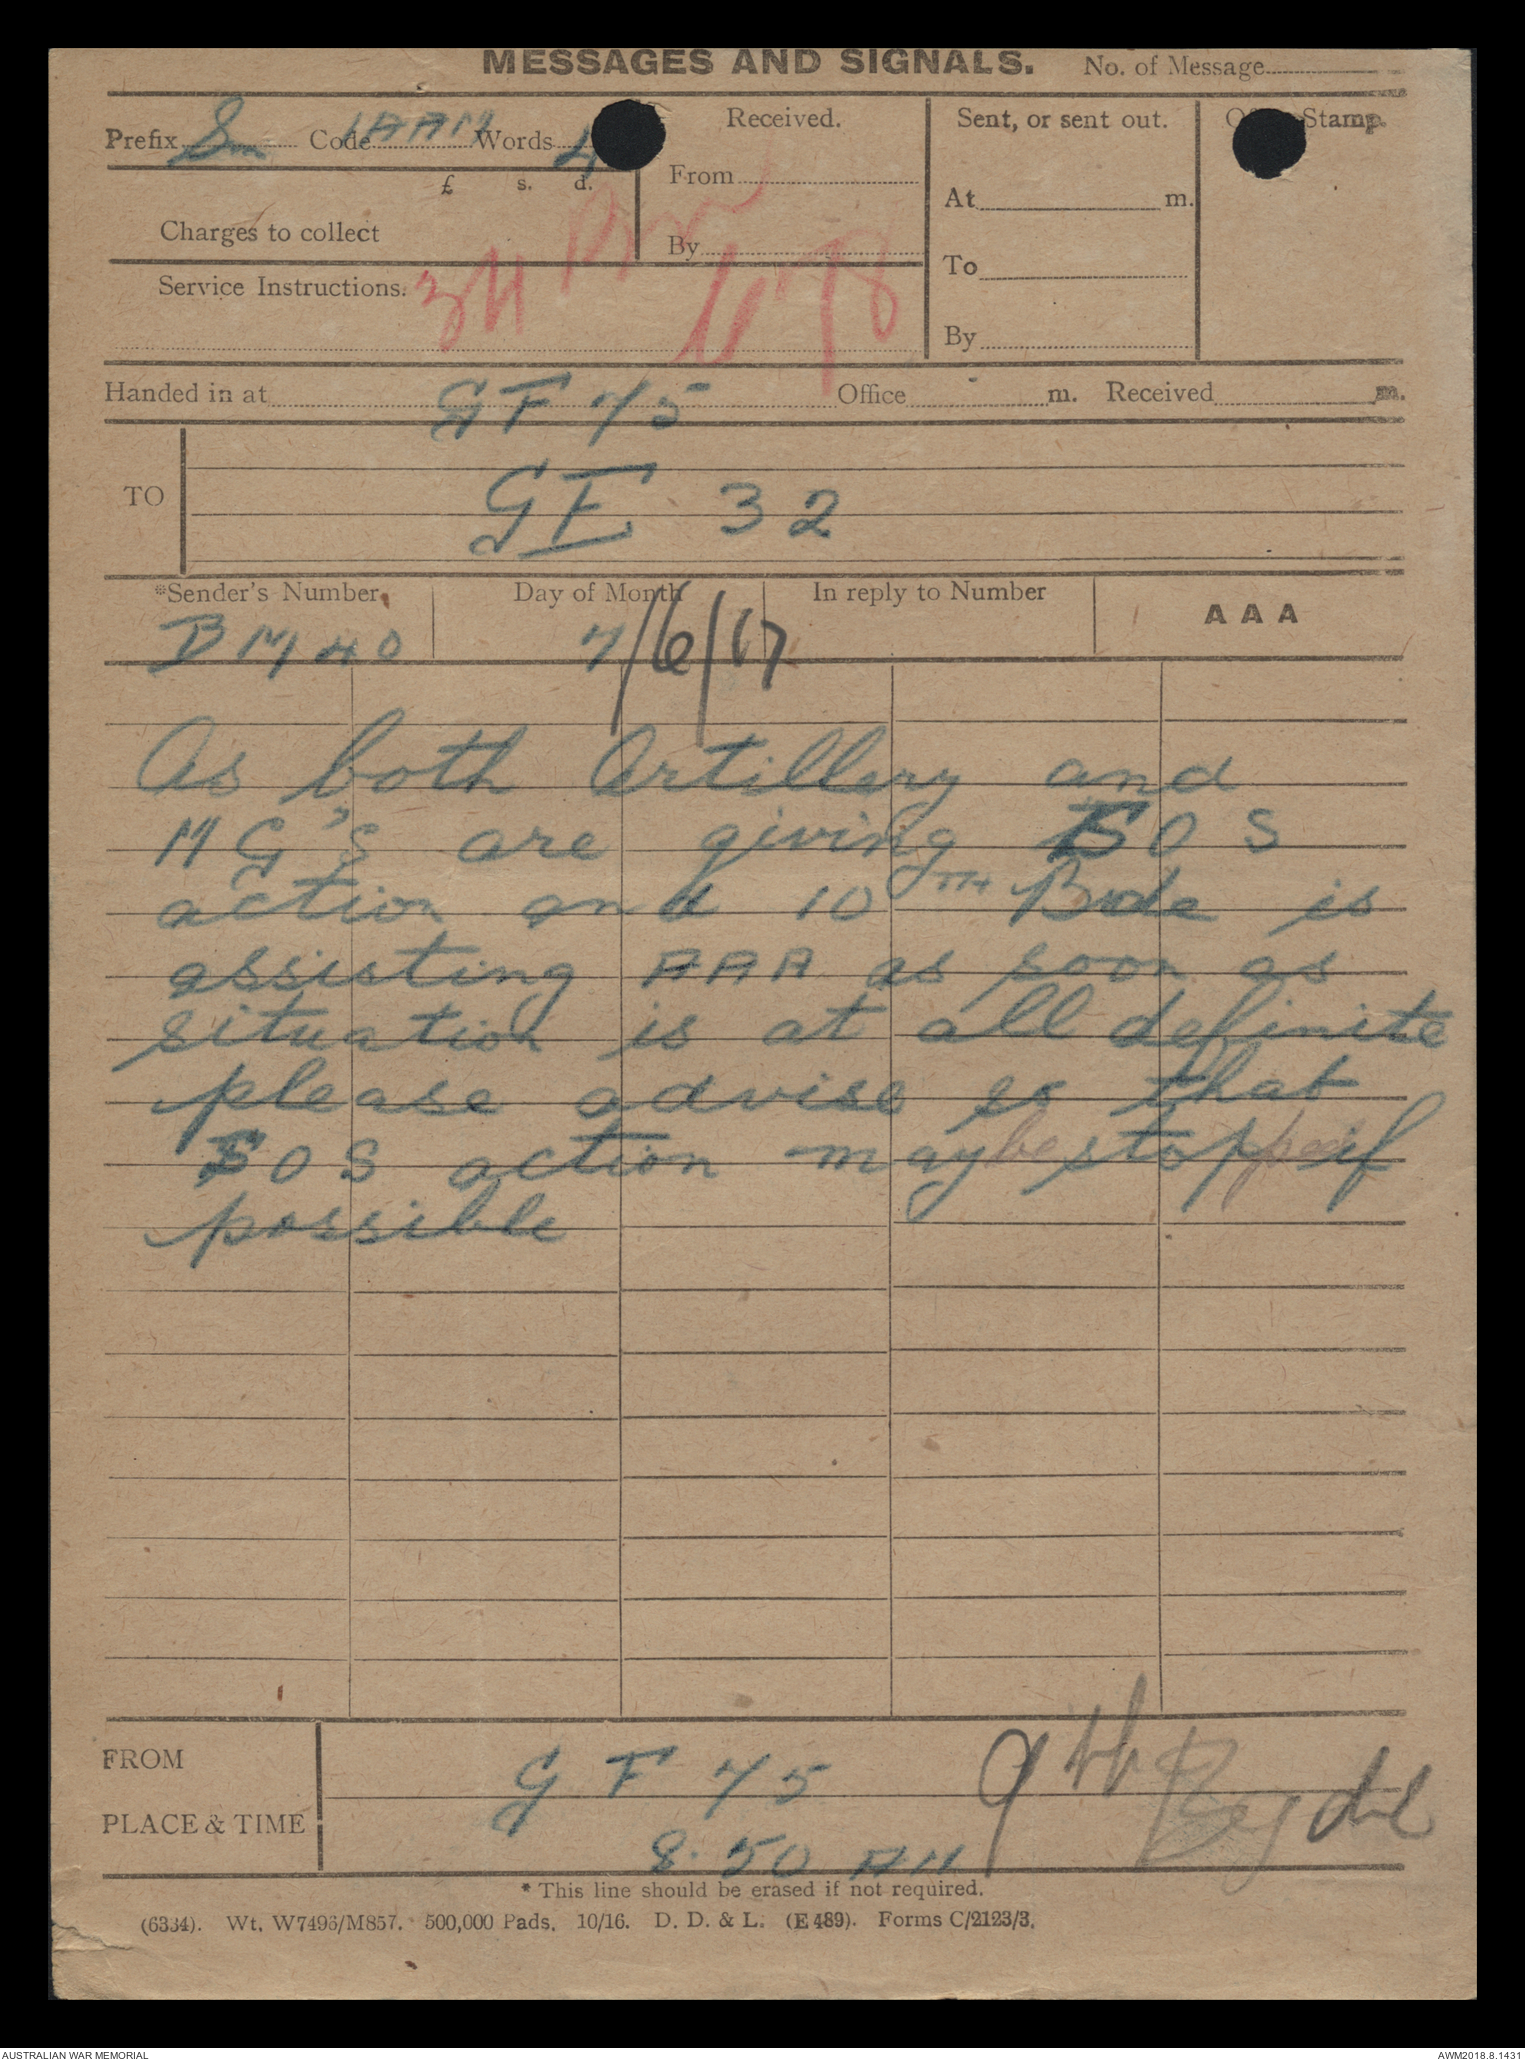 MESSAGES AND SIGNALS. No. of Message
Prefix Sm Code IAAM Words 4
Received.
Sent, or sent out.
Stamp.
£ s. d.
From
At m.
Charges to collect
By
To
Service Instructions.
By
Handed in at GF 75 Office m. Received m.
TO GF 32
*Sender's Number Day of Month In reply to Number AAA
BM 40 7/6/17
As both Artillery and
MG's are giving SOS
action and 10TH Bde is
assisting AAA as soon as
situation is at all definite
please advise so that
SOS action may be stopped if
possible
FROM GF 75 9th Bgde
PLACE & TIME 8.50 AM
* This line should be erased if not required.
(6334). Wt. W7496/M857. 500,000 Pads. 10/16. D. D. & L. (E 489). Forms C/2123/3.
AUSTRALIAN WAR MEMORIAL AWM2018.8.1431